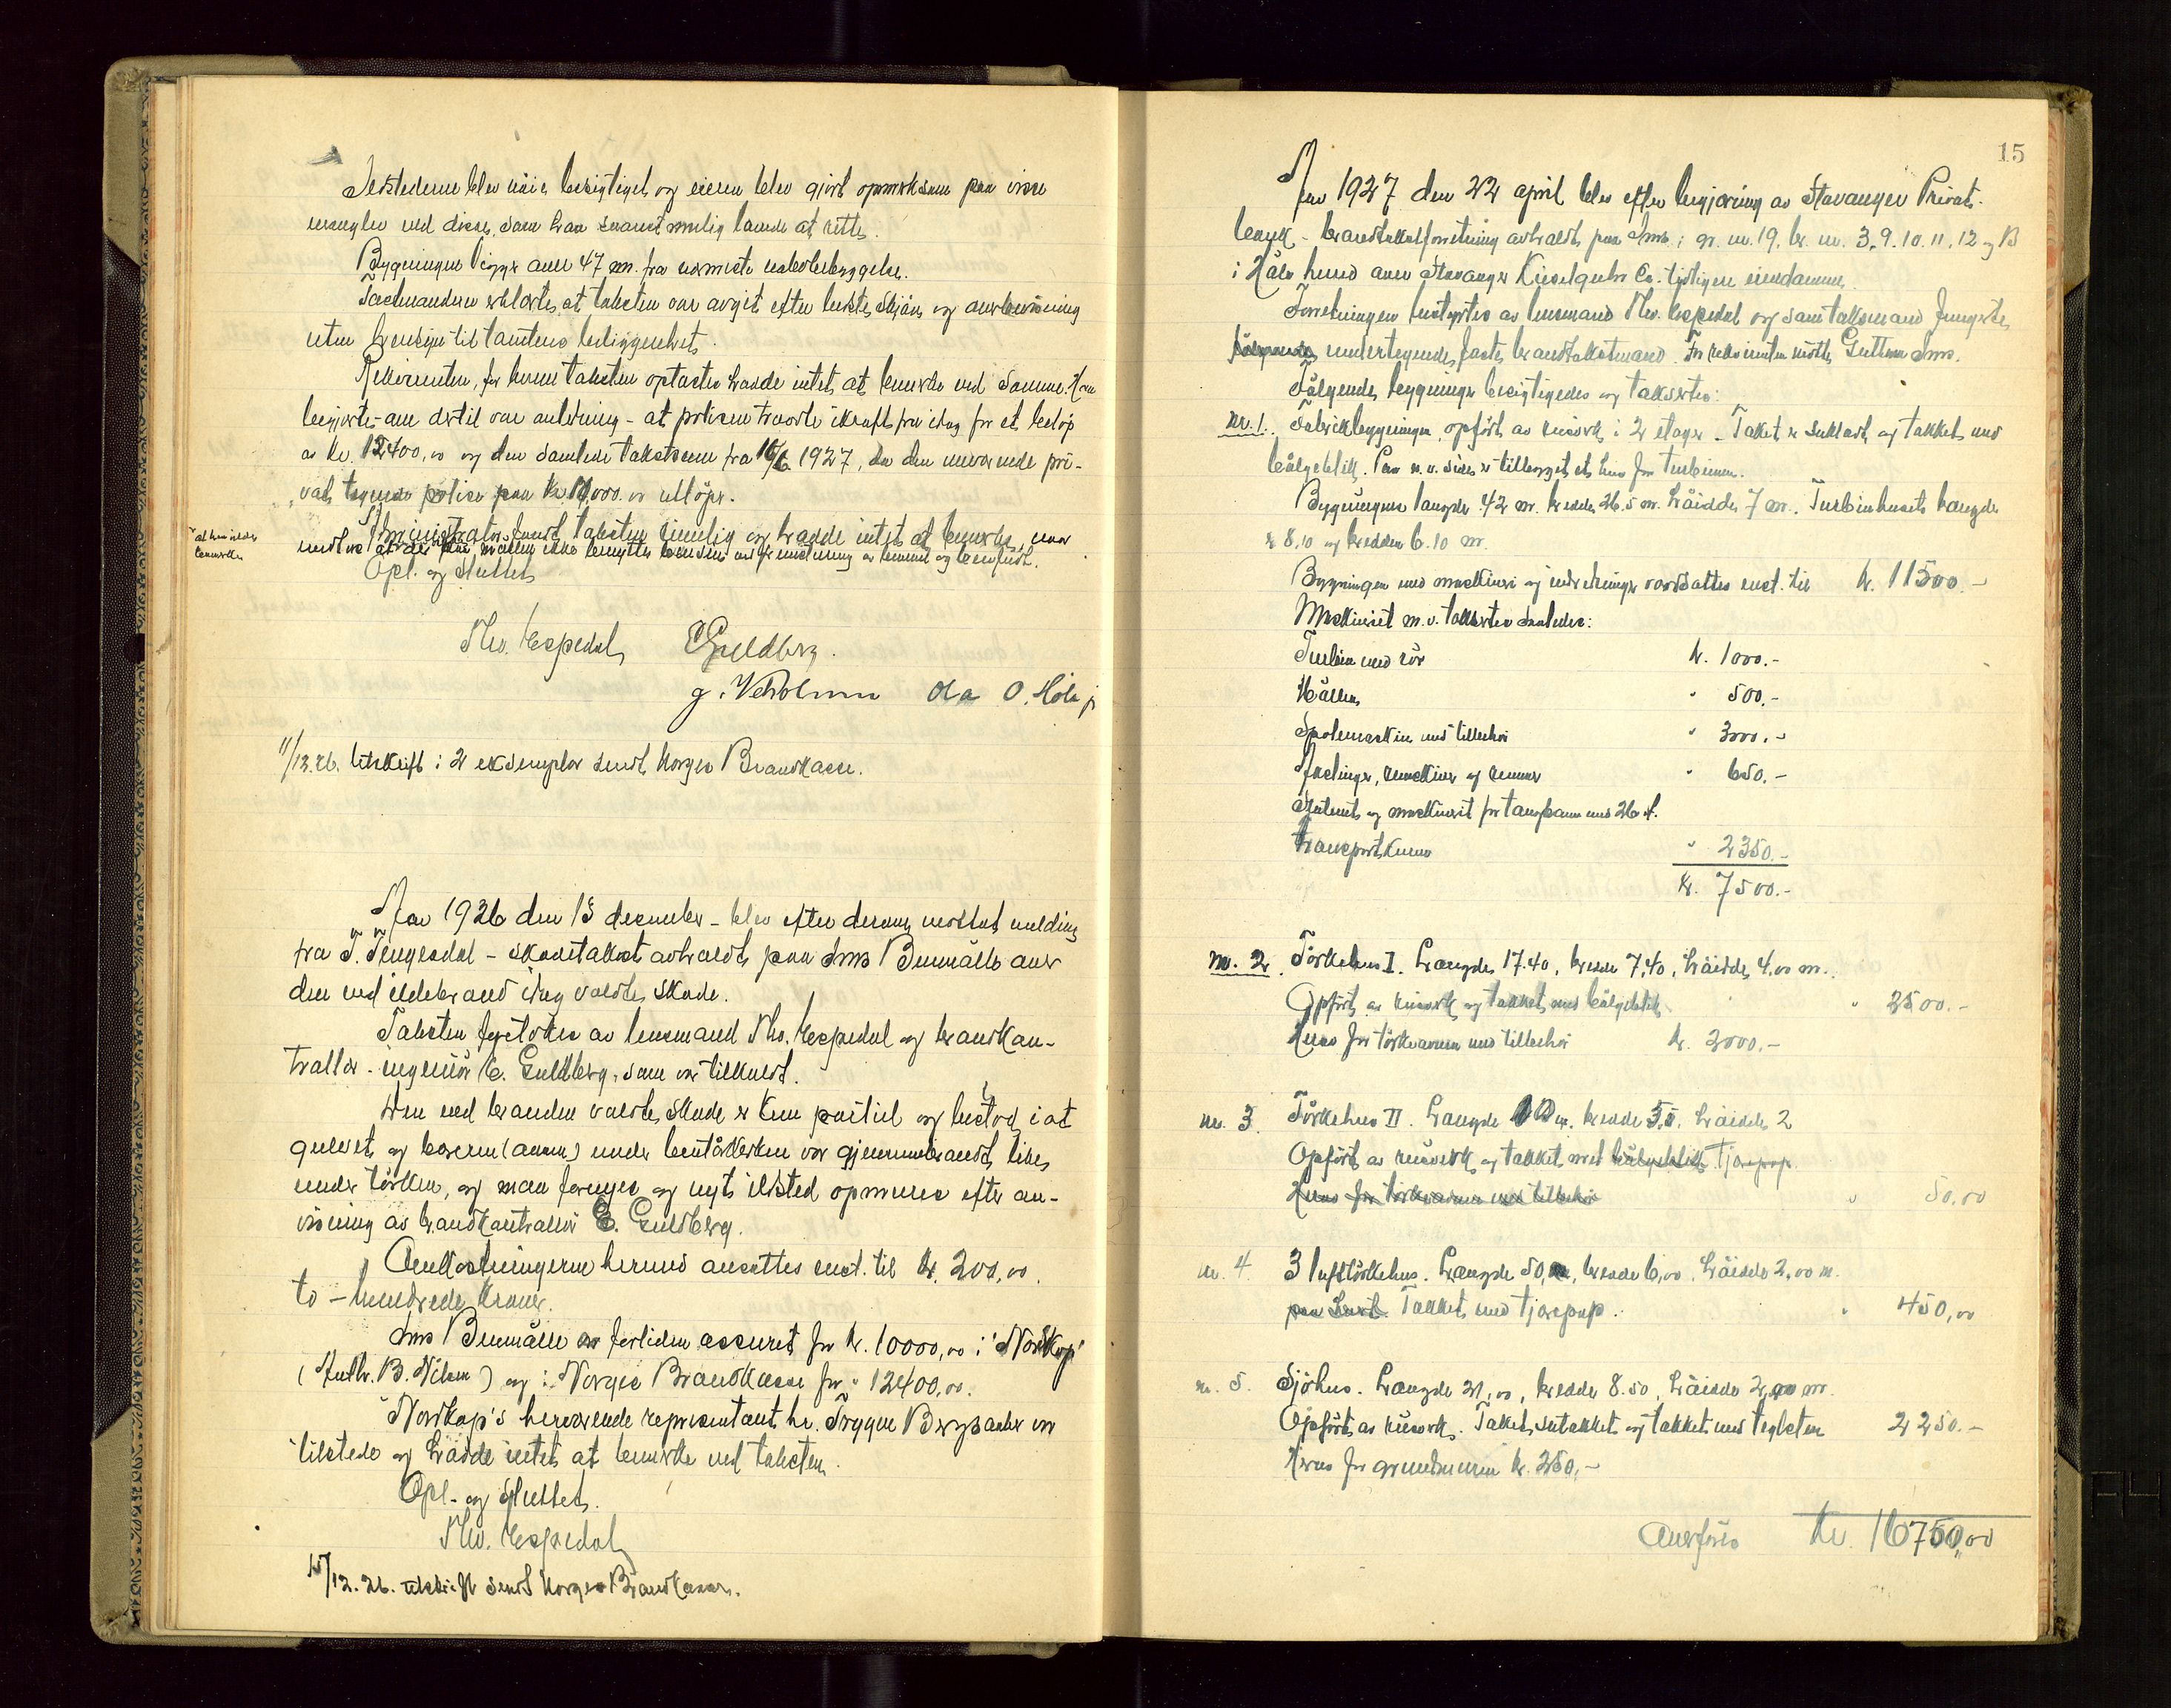 Ildstederne blev nøie besigtiget og eieren blev gjort opmerksom paa visse
mangler ved disse, som han snarest mulig lovede at rette.
Bygningen ligger over 47 m. fra nærmeste nabobebyggelse.
Taxtmændene erklærte, at taksten var avgit efter bedste skjøn og overbevisning
uten hensyn til tomtens beliggenhet.
Rekvirenten, for hvem taksten oplæstes hadde intet at bemerke ved samme. Han
begjærte - om dertil var anledning - at policen traadte i kraft fra idag for et beløp
av kr. 12400,00 og den samlede takstsum fra 1927, da den nuværende pri-
vat tegnede police paa kr. 000.00 utløper.
Administrator fandt taksten rimelig og hadde intet at bemerke, naar
undtas at der ikke benyttes
at han intet
bemerker
Opl. og sluttet
Thv. Espedal E Guldberg.
g. Veholmen Ola O. Høle
11/12.26. Utskrift i 2 eksemplar sendt Norges Brandkasse.
Aar 1926 den 15 december - blev efter derom mottat melding
fra T. Tengesdal - skadetakst avholdt paa Ims Benmølle over
den ved ildebrand idag voldte skade.
Taksten foretokes av lensmand Thv. Espedal og brandkon-
trollør - ingeniør E. Guldberg, som var tilkaldt.
Den ved branden voldte skade er kun partiel og bestod i at
gulvet og under bentørkerken var gjennembrændt like
under tørken, og maa fornyes og nyt ildsted opmures efter an-
visning av brandkontrollør E. Guldberg.
Omkostningerne herved ansattes enst. til kr. 200,00.
to - hundrede kroner.
Ims Benmølle er forliden assuret for kr. 10000,00 i "Nordkap"
( B. Nilsen ) og i Norges Brandkasse for " 12400,00.
"Nordkap"s herværende representant hr. Trygve Bergsaker var
tilstede og hadde intet at bemerke ved taksten.
Opl. og sluttet.
Thv. Espedal
15/12.26. utskrift sendt Norges Brandkasse.
15
Aar 1927 den 22 april blev efter begjæring av Stavanger Privat-
bank - brandtakstforretning avholdt paa Ims i gr. nr. 19, br. nr. 3, 9. 10. 11, 12 og 13
i Høle herred over Stavanger Kiselguhr Co. tidligere eiendomme.
Forretningen bestyrtes av lensmand Thv. Espedal og som takstmænd fungerte
følgende undertegnede faste brandtakstmænd. For rekvirenten møtte Guttorm Ims.
Følgende bygninger besigtigedes og taksertes:
nr. 1. Fabrikbygningen, opført av reisverk i 2 etager - Taket er sutaket og tækket med
bølgeblik. Paa n. v. side er tilbygget et hus for turbinen.
Bygningens længde 42 m. bredde 26.5 m. høide 7 m. Turbinhusets længde
er 8,10 og bredden 6.10 m.
Bygningen med maskineri og indretninger værdsattes enst. til kr. 11500.-
Maskineriet m. v. taksertes saaledes:
Turbin med rør kr. 1000.-
Møllen " 500.-
maskine med tilbehør " 3000.-
Akslinger, remskiver og remmer " 650.-
og maskineriet for taugbane med 26 st.
transportkurve " 2350.-
kr. 7500.-
nr. 2. Tørkehus I. Længde 17.40, bredde 7,40, høide 4,00 m.
Opført av reisverk og tækket med bølgeblik " 2500.-
Herav for tørkeovnen med tilbehør kr. 2000.-
nr. 3. Tørkehus II. Længde 10 m. bredde 5,5. høide 2
Opført av reisverk og tækket med bølgeblik tjærepap.
Herav for tørkeovnen med tilbehør " 50.00
nr. 4. 3 lufttørkehus. Længde 50,00, bredde 6,00, høide 2,00 m.
Tækket med tjærepap. " 450,00
nr. 5. Sjøhus. Længde 21,00, bredde 8.50, høide 2,90 m.
Opført av reisverk. Taket sutakket og tækket med teglsten 2250.-
Herav for grundmuren kr. 250.-
Overføres kr. 16750,00